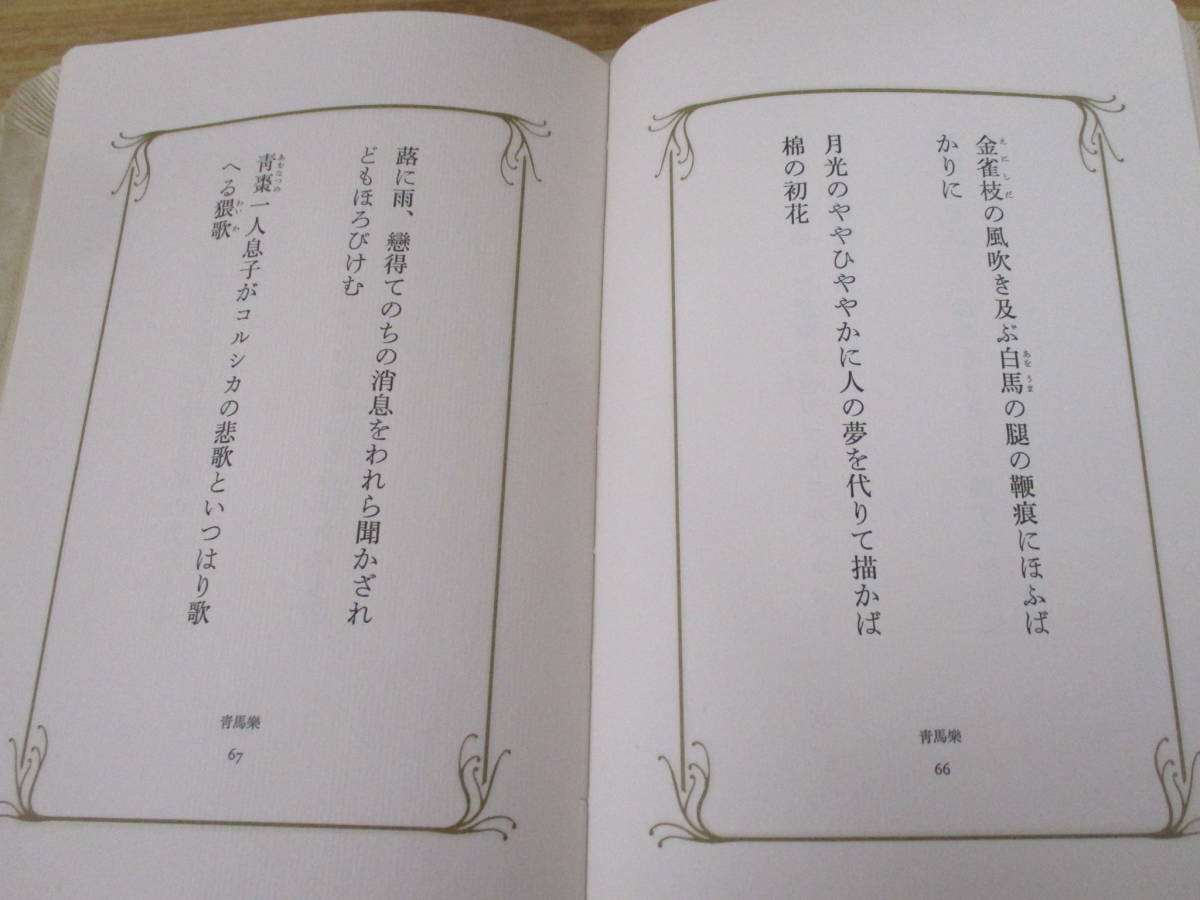 金雀枝の風吹き及ぶ白馬の腿の鞭痕にほふば
かりに
えにしだ
あをうま
月光のややひややかに人の夢を代りて描かば
棉の初花
青馬樂
66
蕗に雨、戀得てのちの消息をわれら聞かざれ
どもほろびけむ
靑棗一人息子がコルシカの悲歌といつはり歌
へる猥歌
あをなつめ
わいか
青馬樂
67